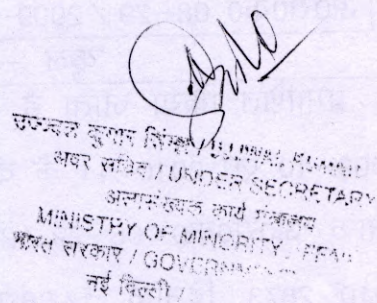 उज्ज्वल कुमार सिन्हा / UJJWAL KUMAR
अवर सचिव / UNDER SECRETARY
अल्पसंख्यक कार्य मंत्रालय
MINISTRY OF MINORITY
भारत सरकार / GOVERNMENT
नई दिल्ली /